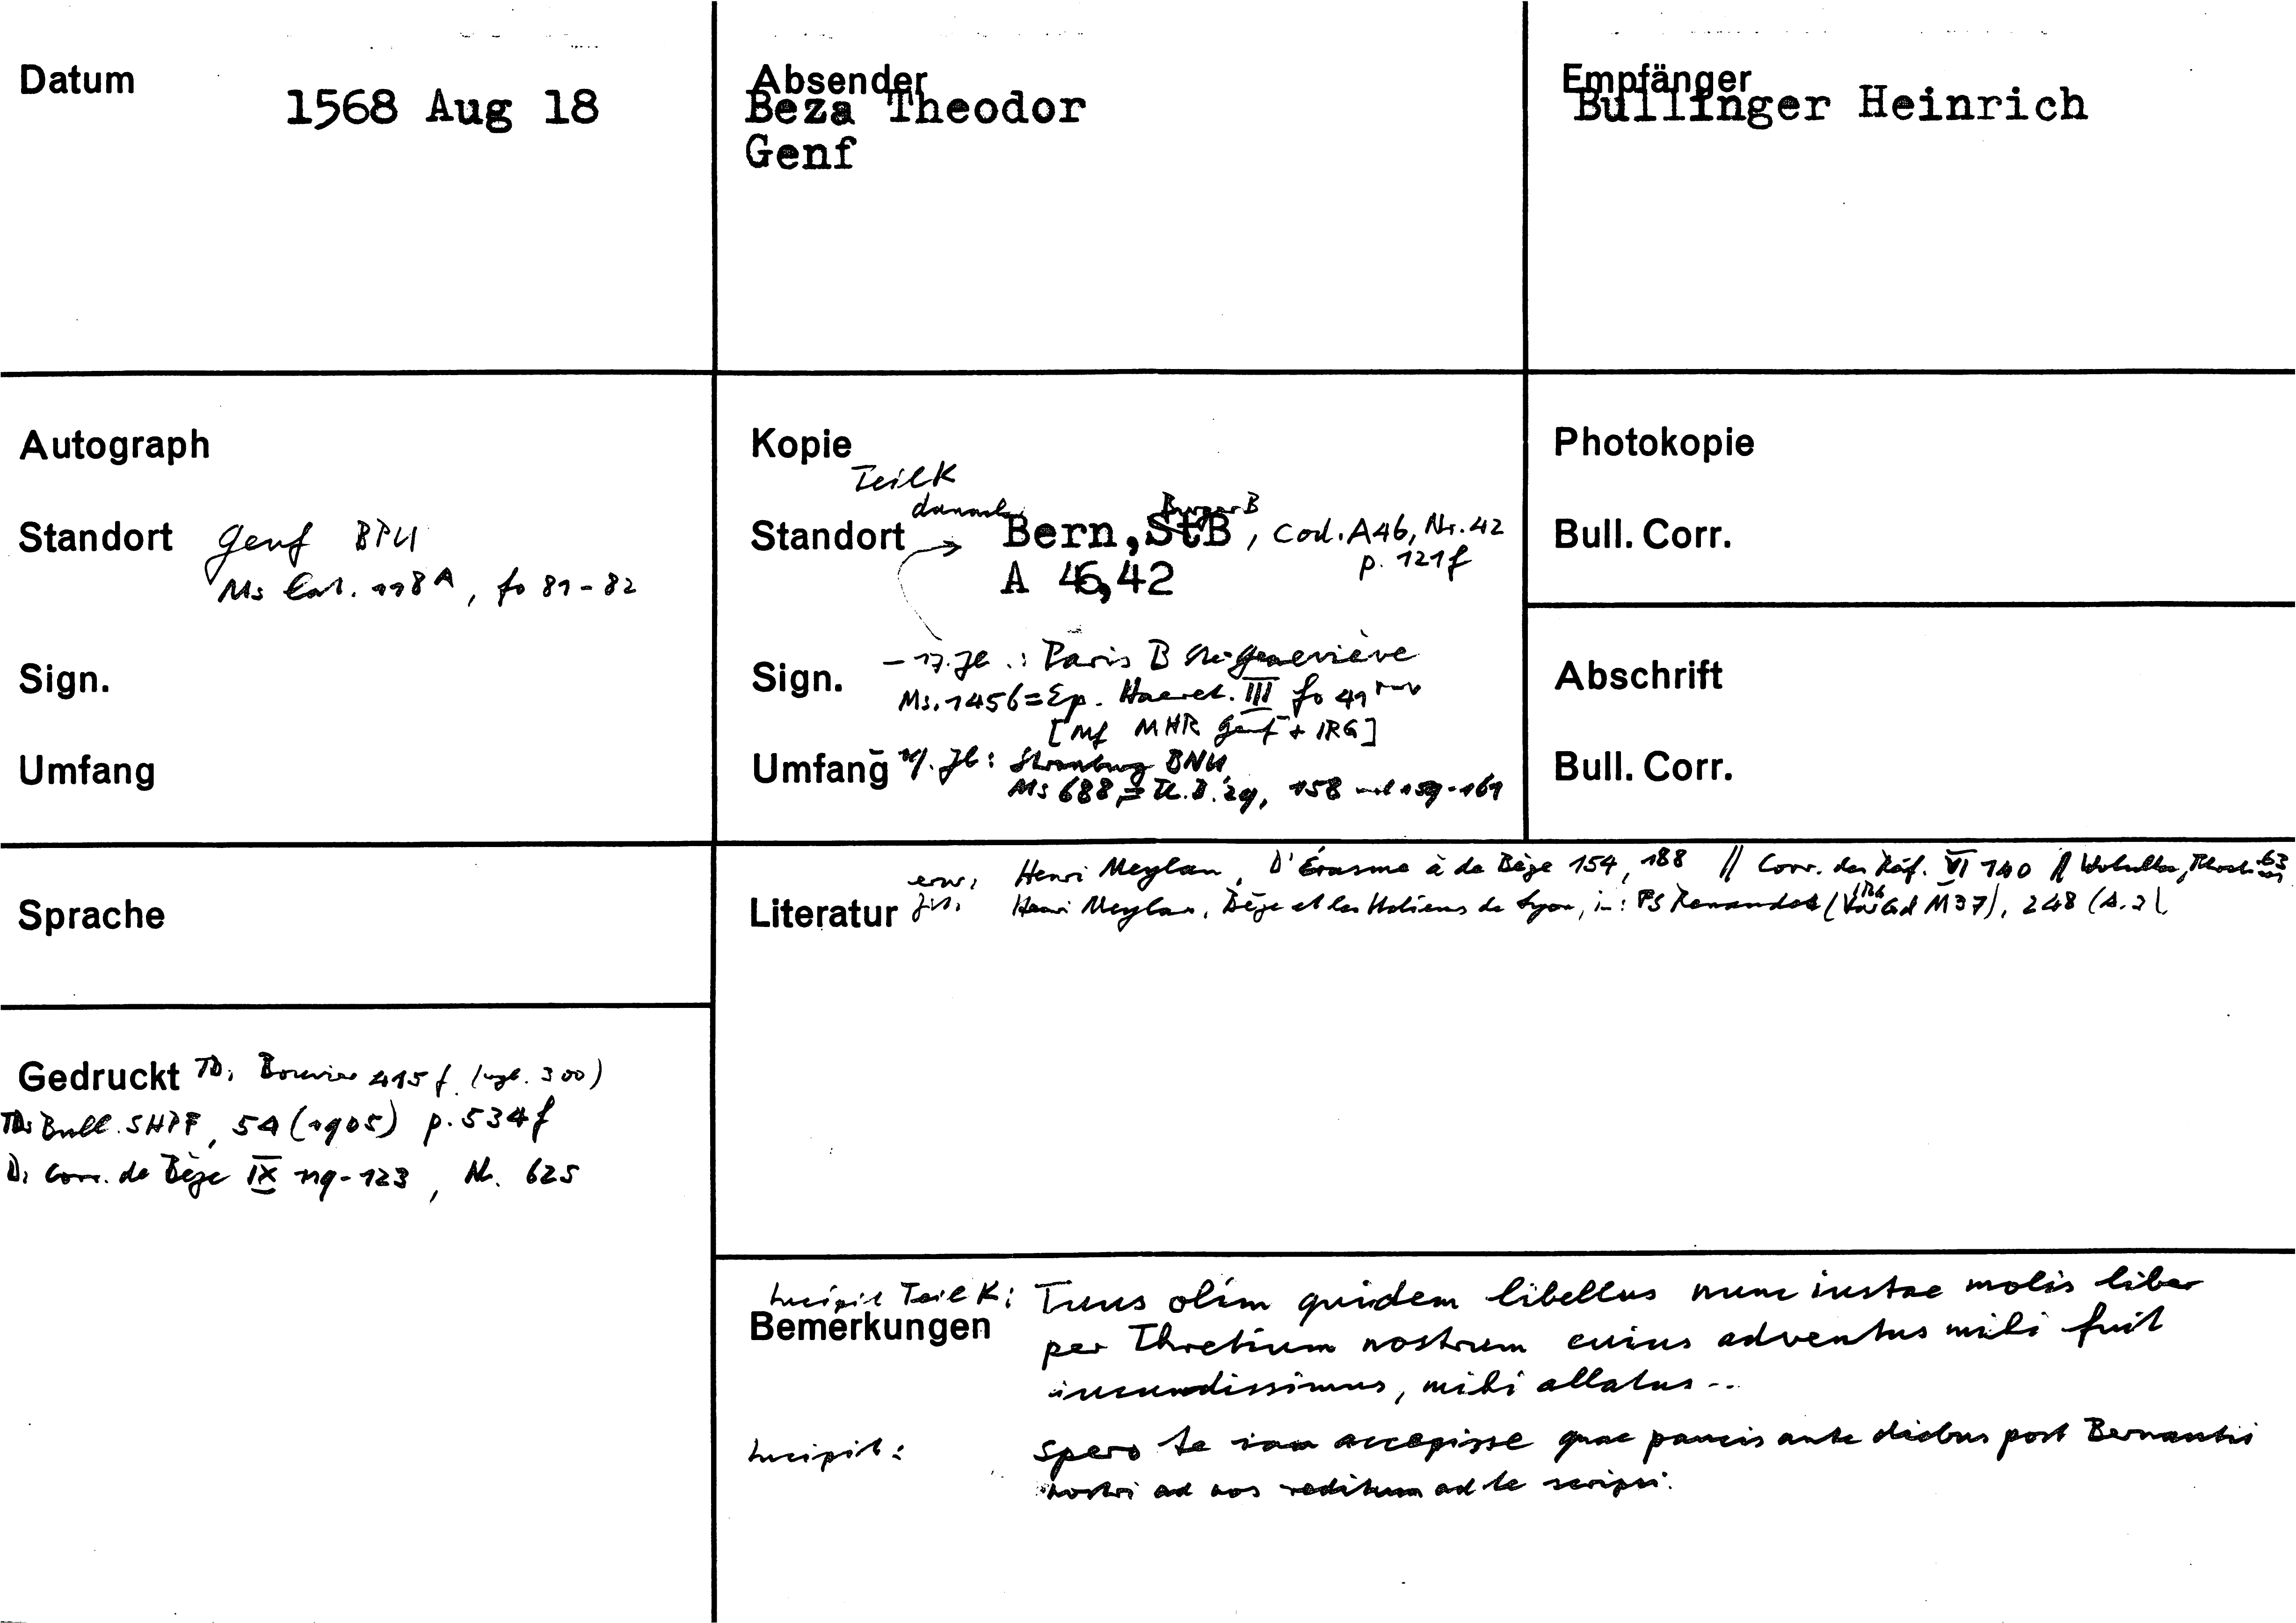 Datum
1568 Aug 18
Absender
Beza Theodor
Genf
Empfänger
Bullinger Heinrich
Autograph
Standort Genf BPU
Ms lat. 118 A, fo 81-82
Sign.
Umfang
Kopie
TeilK
danach BurgerB
Standort → Bern, StB, Cod. A46, Nr. 42
p. 121f
A 46,42
Sign. - 17. Jh.: Paris B Ste-Geneviève
Ms. 1456 = Ep. Haeret. III fo 41
[Mf MHR Genf + IRG]
Umfang Jh: Strassburg BNU
Ms 688 = 158 159-161
Photokopie
Bull. Corr.
Abschrift
Bull. Corr.
Sprache
Literatur
erw. Henri Meylan, D'Érasme à de Bèze 154, 188 // Corr. des Réf. VI 140 //
zit. Henri Meylan, Bèze et les Italiens de Lyon, in: FS Renaudet ( M37), 248 (A.2).
Gedruckt TD: Bouvier 415 f. (vgl. 300)
TD: Bull. SHPF, 54 (1905) p. 534f
D: Corr. de Bèze IX 119-123, Nr. 625
Bemerkungen
Incipit Teil K: Tuus olim quidem libellus nunc iustae molis liber
per Thretium nostrum cuius adventus mihi fuit
iucundissimus, mihi allatus..
Incipit: Spero te iam accepisse quae paucis ante diebus post Bernantis
nostri ad nos reditum ad te scripsi.